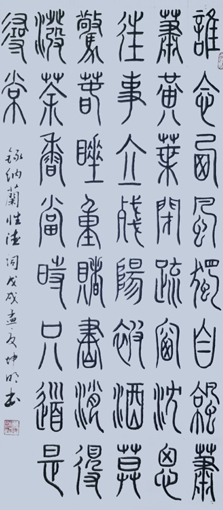 誰念西風獨自涼蕭
蕭黃葉閉疏窗沈思
往事立殘陽被酒莫
驚春睡重賭書消得
潑茶香當時只道是
尋常
錄納蘭性德詞戊戌孟夏仲明書